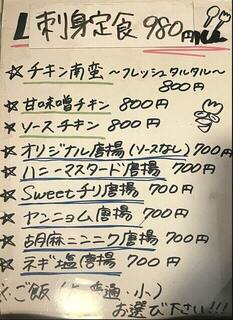 L 刺身定食 980円
☆チキン南蛮 〜フレッシュタルタル〜
800円
☆甘味噌チキン 800円
☆ソースチキン 800円
☆オリジナル唐揚(ソースなし) 700円
☆ハニーマスタード唐揚 700円
☆Sweetチリ唐揚 700円
☆ヤンニョム唐揚 700円
☆胡麻ニンニク唐揚 700円
☆ネギ塩唐揚 700円
※ご飯( 普通・小)
お選び下さい!!!